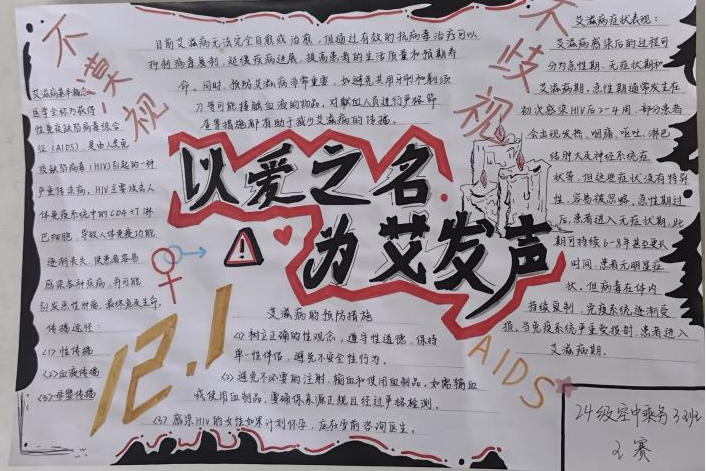 不漠视
不歧视
目前艾滋病无法完全自愈或治愈,但通过有效的抗病毒治疗可以
抑制病毒复制,延缓疾病进展,提高患者的生活质量和预期寿
命。同时,预防艾滋病非常重要,如避免共用牙刷和剃须
刀等可能接触血液的物品,对献血人员进行严格筛
查等措施都有助于减少艾滋病的传播。
艾滋病基本概念
医学全称为获得
性免疫缺陷病毒综合
征(AIDS),是由人类免
疫缺陷病毒(HIV)引起的一种
严重传染病。HIV主要攻击人
体免疫系统中的CD4+T淋
巴细胞,导致人体免疫功能
逐渐丧失,使患者容易
感染各种疾病,并可能
引发恶性肿瘤,最终危及生命。
传播途径:
<1>性传播
<2>血液传播
<3>母婴传播
以爱之名
为艾发声
12.1
艾滋病的预防措施
<1>树立正确的性观念,遵守性道德,保持
单一性伴侣,避免不安全性行为。
<2>避免不必要的注射、输血和使用血制品,如需输血
或使用血制品,要确保来源正规且经过严格检测。
<3>感染HIV的女性如果计划怀孕,应在孕前咨询医生。
艾滋病症状表现:
艾滋病感染后的过程可
分为急性期、无症状期和
艾滋病期。急性期通常发生在
初次感染HIV后2-4周,部分患者
会出现发热、咽痛、呕吐、淋巴
结肿大及神经系统症
状等,但这些症状没有特异
性,容易被忽略。急性期过
后,患者进入无症状期,此
期可持续6-8年甚至更长
时间,患者无明显症
状,但病毒在体内
持续复制,免疫系统逐渐受
损。当免疫系统严重受损时,患者进入
艾滋病期。
AIDS
24级空中乘务3班